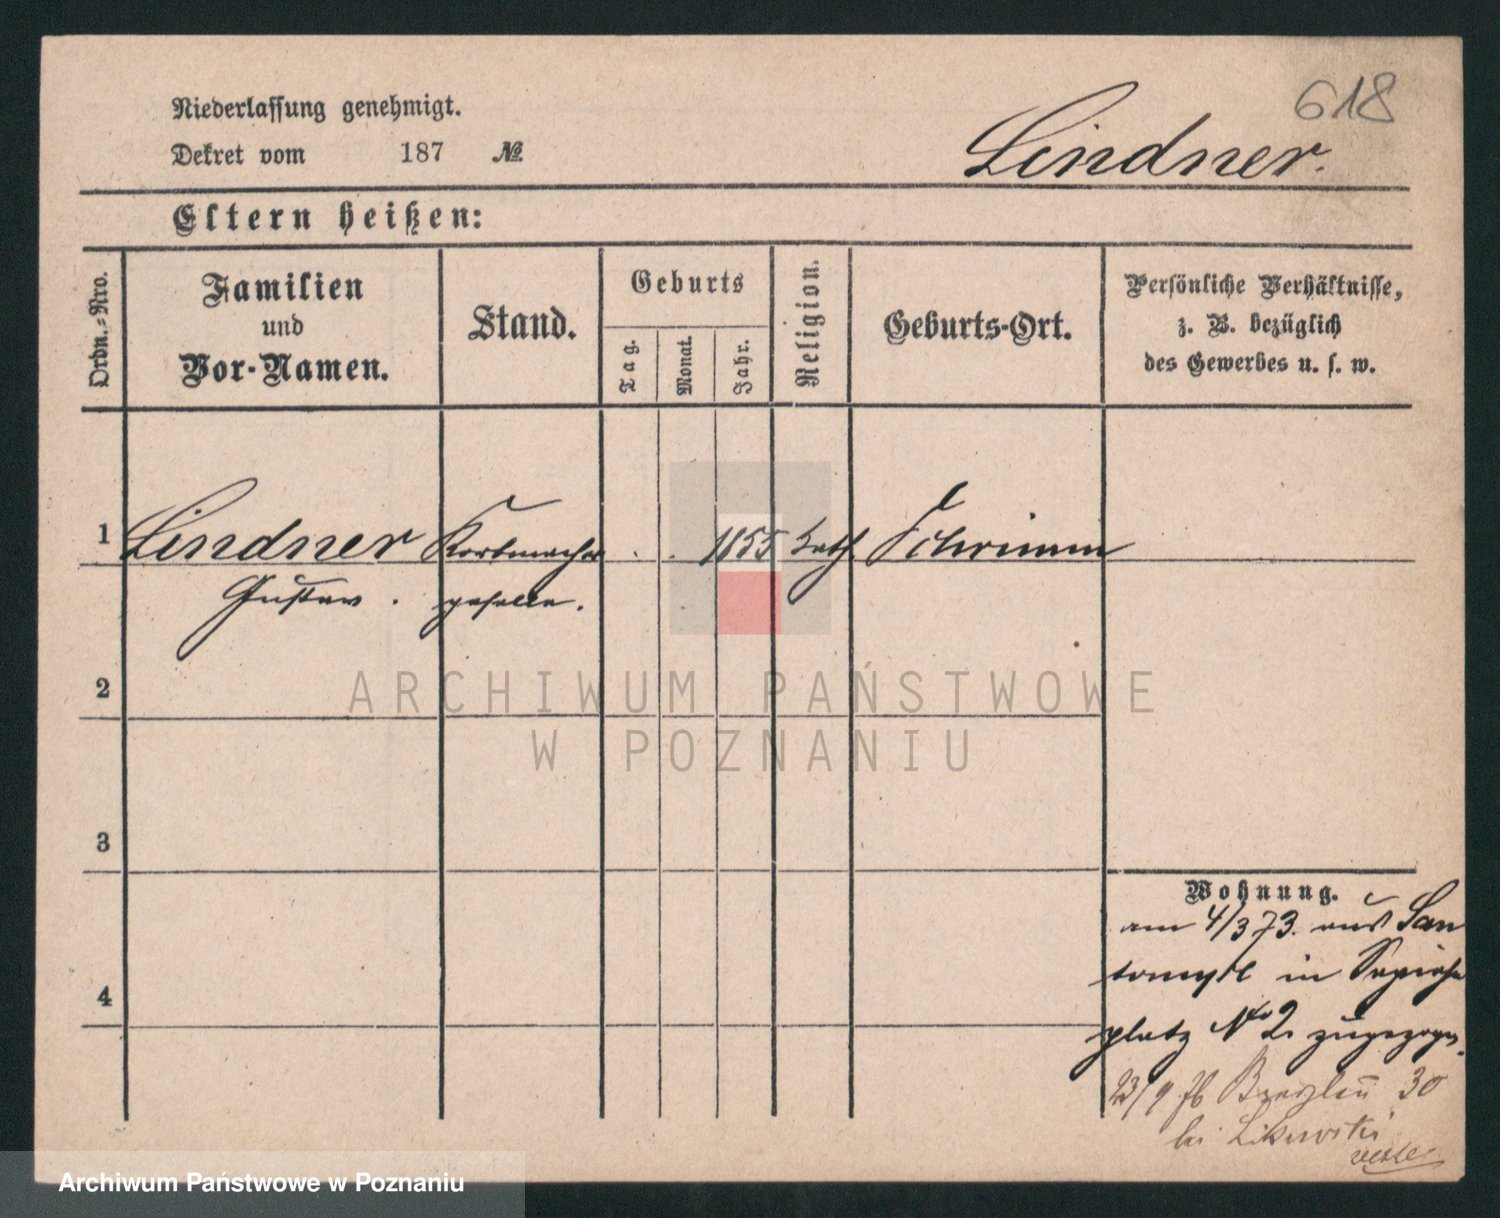 618
Niederlassung genehmigt.
Dekret vom 187 №
Lindner.
Eltern heißen:
Ordn.-Nro.
Familien
und
Vor-Namen.
Stand.
Geburts
Tag.
Monat.
Jahr.
Religion.
Geburts-Ort.
Persönliche Verhältnisse,
z. B. bezüglich
des Gewerbes u. s. w.
1 Lindner Korbmacher . . 1855 kath Schrimm
Gustav . geselle.
2
ARCHIWUM PAŃSTWOWE
W POZNANIU
3
4
Wohnung.
am 4/3 73. aus San
tomysl in Sapieha
platz No 2 zugezogen.
23/9 76 30
bei Likowski
Archiwum Państwowe w Poznaniu